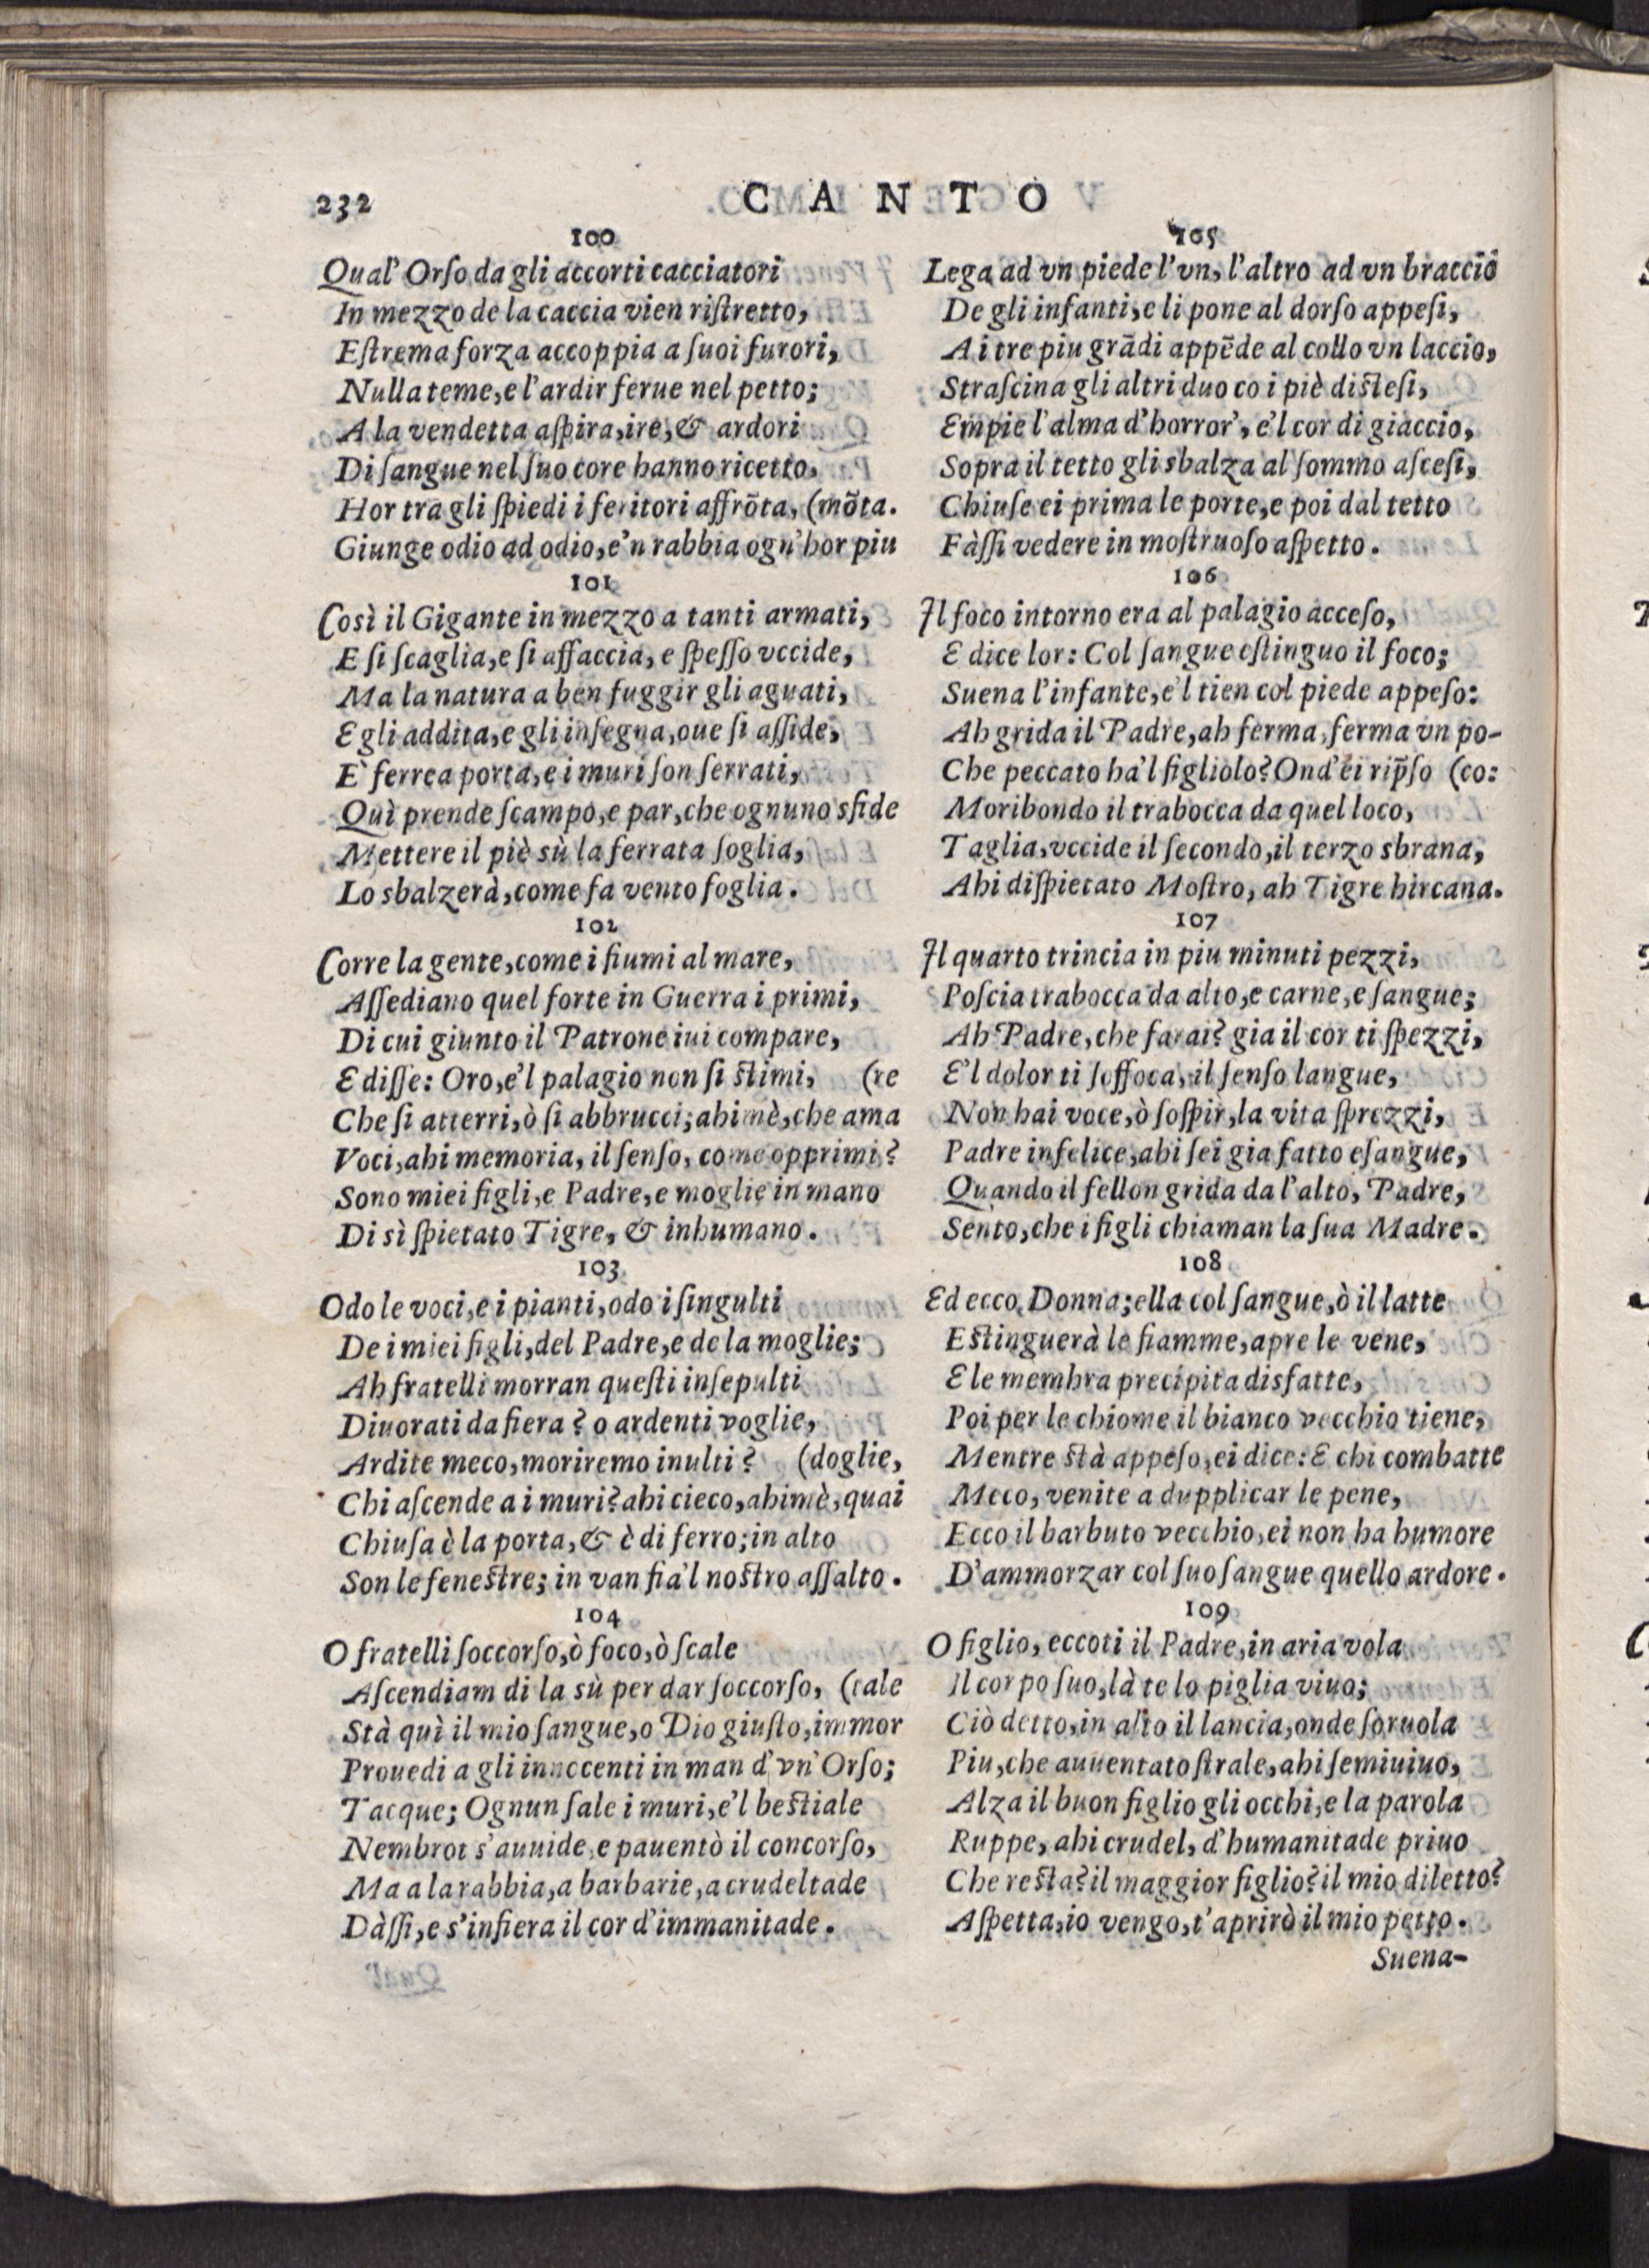 232
CANTO
100
Qual' Orſo da gli accorti cacciatori
In mezzo de la caccia vien riſtretto,
Eſtrema forza accoppia a ſuoi furori,
Nulla teme, e l'ardir ferue nel petto;
A la vendetta aſpira, ire, & ardori
Di ſangue nel ſuo core hanno ricetto,
Hor tra gli ſpiedi i feritori affrõta, (mõta.
Giunge odio ad odio, e'n rabbia ogn'hor piu
101
Così il Gigante in mezzo a tanti armati,
E ſi ſcaglia, e ſi affaccia, e ſpeſſo vccide,
Ma la natura a ben fuggir gli aguati,
E gli addita, e gli inſegna, oue ſi aſſide,
E` ferrea porta, e i muri ſon ſerrati,
Quì prende ſcampo, e par, che ognuno sfide
Mettere il piè sù la ferrata ſoglia,
Lo sbalzerà, come fa vento foglia.
102
Corre la gente, come i fiumi al mare,
Aſſediano quel forte in Guerra i primi,
Di cui giunto il Patrone iui compare,
E diſſe: Oro, e'l palagio non ſi ſtimi, (re
Che ſi atterri, ò ſi abbrucci; ahimè, che ama
Voci, ahi memoria, il ſenſo, come opprimi?
Sono miei figli, e Padre, e moglie in mano
Di sì ſpietato Tigre, & inhumano.
103
Odo le voci, e i pianti, odo i ſingulti
De i miei figli, del Padre, e de la moglie;
Ah fratelli morran queſti inſepulti
Diuorati da fiera? o ardenti voglie,
Ardite meco, moriremo inulti? (doglie,
Chi aſcende a i muri? ahi cieco, ahimè, quai
Chiuſa è la porta, & è di ferro; in alto
Son le feneſtre; in van fia'l noſtro aſſalto.
104
O fratelli ſoccorſo, ò foco, ò ſcale
Aſcendiam di la sù per dar ſoccorſo, (tale
Stà quì il mio ſangue, o Dio giuſto, immor
Prouedi a gli innocenti in man d'vn' Orſo;
Tacque; Ognun ſale i muri, e'l beſtiale
Nembrot s'auuide, e pauentò il concorſo,
Ma a la rabbia, a barbarie, a crudeltade
Dàſſi, e s'infiera il cor d'immanitade.
105
Lega ad vn piede l'vn, l'altro ad vn braccio
De gli infanti, e li pone al dorſo appeſi,
A i tre piu grãdi appẽde al collo vn laccio,
Straſcina gli altri duo co i piè diſteſi,
Empie l'alma d'horror', e'l cor di giaccio,
Sopra il tetto gli sbalza al ſommo aſceſi,
Chiuſe ei prima le porte, e poi dal tetto
Fàſſi vedere in moſtruoſo aſpetto.
106
Il foco intorno era al palagio acceſo,
E dice lor: Col ſangue eſtinguo il foco;
Suena l'infante, e'l tien col piede appeſo:
Ah grida il Padre, ah ferma, ferma vn po-
Che peccato ha'l figliolo? Ond'ei rip̃ſo (co:
Moribondo il trabocca da quel loco,
Taglia, vccide il ſecondo, il terzo sbrana,
Ahi diſpietato Moſtro, ah Tigre hircana.
107
Il quarto trincia in piu minuti pezzi,
Poſcia trabocca da alto, e carne, e ſangue;
Ah Padre, che farai? gia il cor ti ſpezzi,
E'l dolor ti ſoffoca, il ſenſo langue,
Non hai voce, ò ſoſpir, la vita ſprezzi,
Padre infelice, ahi ſei gia fatto eſangue,
Quando il fellon grida da l'alto, Padre,
Sento, che i figli chiaman la ſua Madre.
108
Ed ecco, Donna; ella col ſangue, ò il latte
Eſtinguerà le fiamme, apre le vene,
E le membra precipita disfatte,
Poi per le chiome il bianco vecchio tiene,
Mentre ſtà appeſo, ei dice: E chi combatte
Meco, venite a dupplicar le pene,
Ecco il barbuto vecchio, ei non ha humore
D'ammorzar col ſuo ſangue quello ardore.
109
O figlio, eccoti il Padre, in aria vola
Il corpo ſuo, là te lo piglia viuo;
Ciò detto, in alto il lancia, onde ſoruola
Piu, che auuentato ſtrale, ahi ſemiuiuo,
Alza il buon figlio gli occhi, e la parola
Ruppe, ahi crudel, d'humanitade priuo
Che reſta? il maggior figlio? il mio diletto?
Aſpetta, io vengo, t'aprirò il mio petto.
Suena-